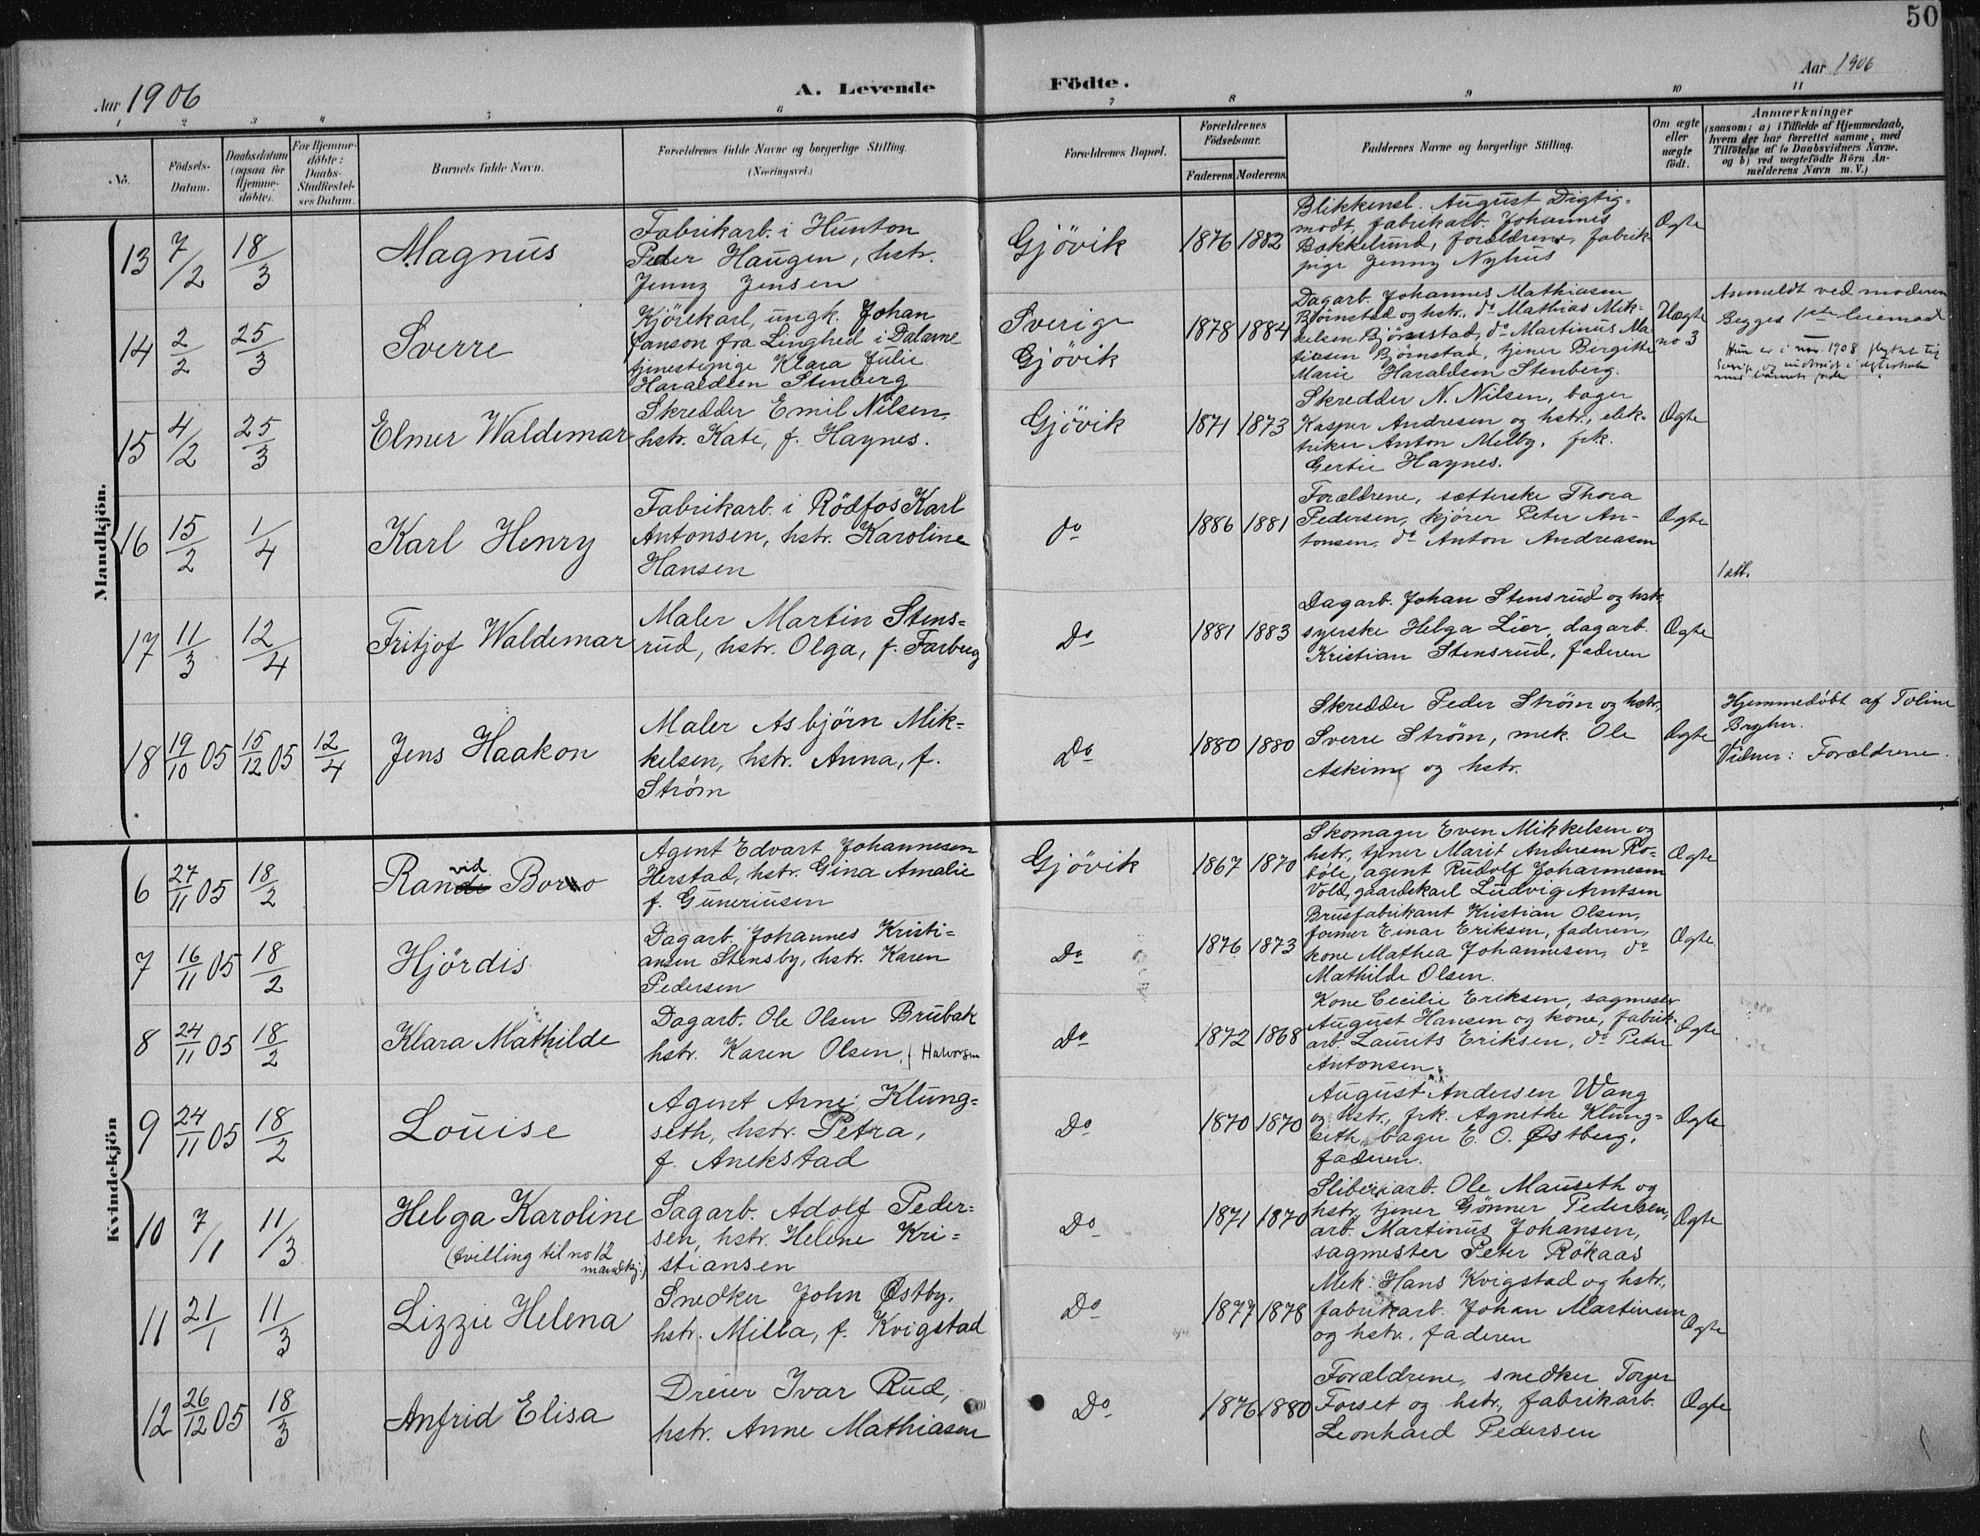 50
Aar 1906
A. Levende
Födte.
Aar 1906
1 2 3 4 5 6 7 8 9 10 11
No.
Födsels-
Datum.
Daabsdatum
(ogsaa for
Hjemme-
döbte).
For Hjemme-
döbte:
Daabs-
Stadfæstel-
ses Datum.
Barnets fulde Navn.
Forældrenes fulde Navne og borgerlige Stilling.
(Næringsvei.)
Forældrenes Bopæl.
Forældrenes
Födselsaar.
Faderens Moderens
Faddernes Navne og borgerlige Stilling.
Om ægte
eller
uægte
födt.
Anmærkninger
(saasom: a) i Tilfælde af Hjemmedaab,
hvem der har forrettet samme, med
Tilföielse af to Daabsvidners Navne.
og b) ved uægtefödte Börn An-
melderens Navn m. V.)
Mandkjön.
13 7/2 18/3 Magnus
Fabrikarb. i Hunton
Peder Haugen, hstr.
Jenny Jensen
Gjövik 1876 1882
Blikkensl. August Digtig-
modt, fabrikarb. Johannes
Bakkelund, forældrene, fabrik-
pige Jenny Nyhus
Ægte
14 2/2 25/3 Sverre
Kjörekarl, ungk. Johan
Janson fra Linghed i Dalarne
tjenestepige Klara Julie
Haraldsen Stenberg
Sverige
Gjövik
1878 1884
Dagarb. Johannes Mathiasen
Björnstad og hstr., do Mathias Mik-
kelsen Björnstad, do Martinus Ma-
tiesen Björnstad, tjener Birgitte
Marie Haraldsen Stenberg.
Uægte
no 3
Anmeldt ved moderen
Begges 1ste leiemaal
Hun er i nov. 1908 flyttet til
Sverige og indtraadt i ægteskab
med barnets fader
15 4/2 25/3 Elmer Waldemar
Skredder Emil Nilsen
hstr. Kate, f. Haynes.
Gjövik 1871 1873
Skredder N. Nilsen, bager
Kasper Andresen og hstr., elek-
triker Anton Melby, frk.
Gertie Haynes.
Ægte
16 15/2 1/4 Karl Henry
Fabrikarb. i Rödfos Karl
Antonsen, hstr. Karoline
Hansen
do 1886 1881
Forældrene, sætterske Thora
Pedersen, kjører Peter An-
tonsen, do Anton Andreasen
Ægte
1 att.
17 11/3 12/4 Fritjof Waldemar
Maler Martin Stens-
rud, hstr. Olga, f. Farberg
Do 1881 1883
Dagarb. Johan Stensrud og hstr.
syerske Helga Lier, dagarb.
Kristian Stensrud, faderen
Ægte
18 19/10 05 15/12 05 12/4 Jens Haakon
Maler Asbjörn Mik-
kelsen, hstr. Anna, f.
Strøm
Do 1880 1880
Skredder Peder Strøm og hstr,
Sverre Strøm, mek. Ole
Askim og hstr.
Ægte
Hjemmedöbt af Toline
Bryhn.
Vidner: Forældrene.
Kvindekjön
6 27/11 05 18/2 Randi vid Borro
Agent Edvart Johannesen
Herstad, hstr. Gina Amalie
f. Guneriusen
Gjövik 1867 1870
Skomager Even Mikkelsen og
hstr., tjener Marit Andersen Ro-
böle, agent Rudolf Johannesen
Vold, gaardskarl Ludvig Arntsen
Ægte
7 16/11 05 18/2 Hjördis
Dagarb. Johannes Kristi-
ansen Stensby, hstr. Karen
Pedersen
Do 1876 1873
Brusfabrikant Kristian Olsen,
former Einar Eriksen, faderen,
kone Mathea Johannesen, do
Mathilde Olsen.
Ægte
8 24/11 05 18/2 Klara Mathilde
Dagarb. Ole Olsen Brubak
hstr. Karen Olsen, f. Halvorsen
Do 1872 1868
Kone Cecilie Eriksen, sagmester
August Hansen og kone, fabrik-
arb. Laurits Eriksen, do Peter
Antonsen.
Ægte
9 24/11 05 18/2 Louise
Agent Arne Klung-
seth, hstr. Petra,
f. Anekstad
Do 1870 1870
August Andersen Wang
og hstr., frk. Agnethe Klung-
seth, bager E. O. Østberg,
faderen.
Ægte
10 7/1 11/3 Helga Karoline
(tvilling til no 12
mandkj.)
Sagarb. Adolf Peder-
sen, hstr. Helene Kri-
stiansen
Do 1871 1870
Sliberiarb. Ole Mauseth og
hstr., tjener Gönner Pedersen,
arb. Martinus Johansen,
sagmester Peter Rökaas
Ægte
11 21/1 11/3 Lizzie Helena
Snedker John Østby,
hstr. Milla, f. Kvigstad
Do 1877 1878
Mek. Hans Kvigstad og hstr.,
fabrikarb. Johan Martinsen
og hstr., faderen
Ægte
12 26/12 05 18/3 Anfrid Elisa
Dreier Ivar Rud,
hstr. Anne Mathiasen
Do 1876 1880
Forældrene, snedker Torger
Forset og hstr., fabrikarb.
Leonhard Pedersen
Ægte